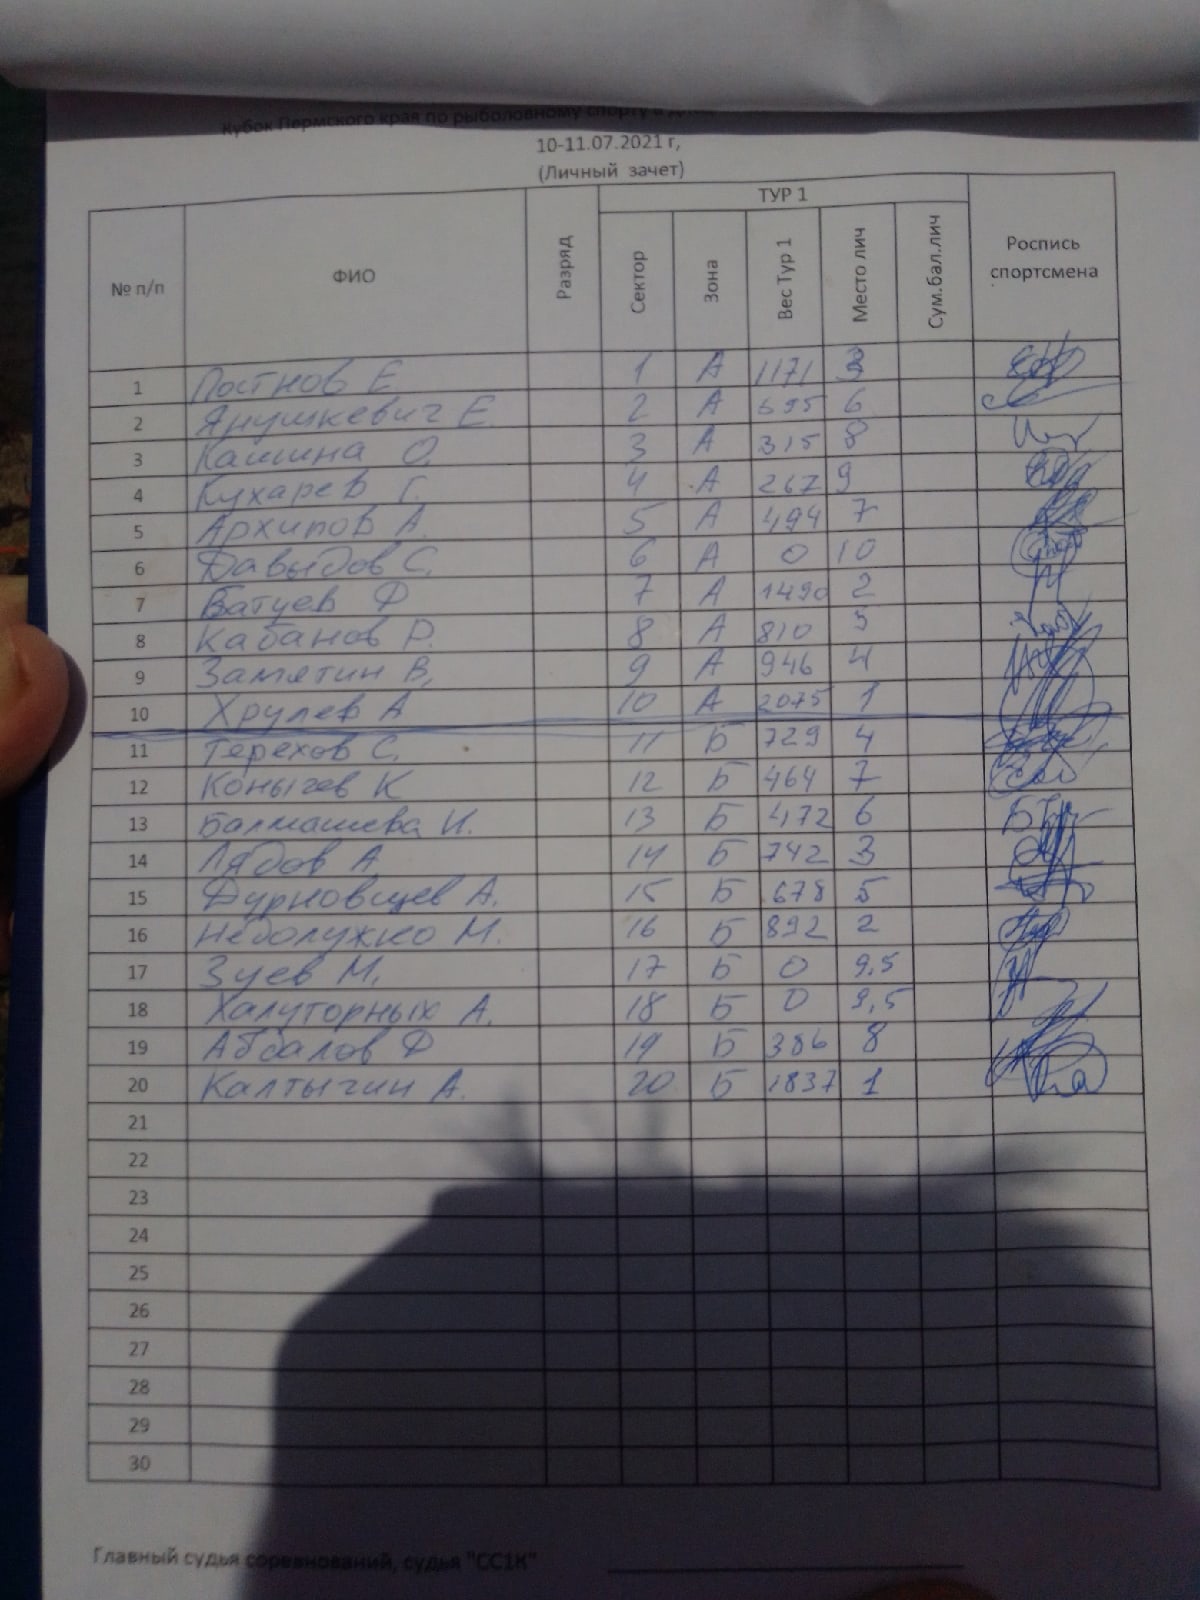 Кубок Пермского края по рыболовному спорту в
10-11.07.2021 г,
(Личный зачет)
№ п/п ФИО Разряд ТУР 1 Роспись спортсмена
Сектор Зона Вес Тур 1 Место лич Сум.бал.лич
1 Постнов Е. 1 А 1171 3
2 Янушкевич Е. 2 А 695 6
3 Кашина О. 3 А 315 8
4 Кухарев Г. 4 А 267 9
5 Архипов А. 5 А 494 7
6 Давыдов С. 6 А 0 10
7 Батуев Ф 7 А 1490 2
8 Кабанов Р. 8 А 810 5
9 Замятин В. 9 А 946 4
10 Хрулев А 10 А 2075 1
11 Терехов С. 11 Б 729 4
12 Конычев К 12 Б 464 7
13 Балмашева И. 13 Б 472 6
14 Лядов А. 14 Б 742 3
15 Дурновцев А. 15 Б 678 5
16 Недолужко М. 16 Б 892 2
17 Зуев М. 17 Б 0 9,5
18 Халуторных А. 18 Б 0 9,5
19 Абдалов Ф 19 Б 386 8
20 Калтыгин А. 20 Б 1837 1
21
22
23
24
25
26
27
28
29
30
Главный судья соревнований, судья "СС1К"